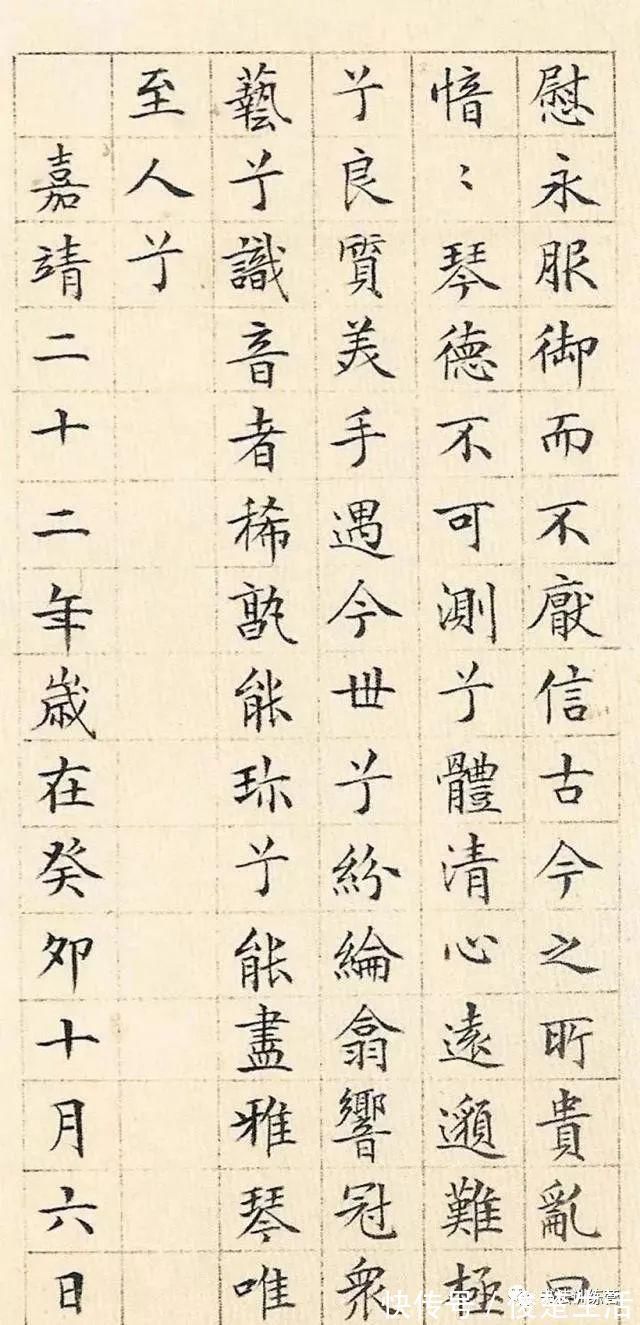 慰永服御而不厭信古今之所貴亂曰
愔〻琴德不可測兮體清心遠邈難極
兮良質美手遇今丗兮紛綸翕響冠衆
藝兮識音者稀孰能珎兮能盡雅琴唯
至人兮
嘉靖二十二年歲在癸夘十月六日
快传号